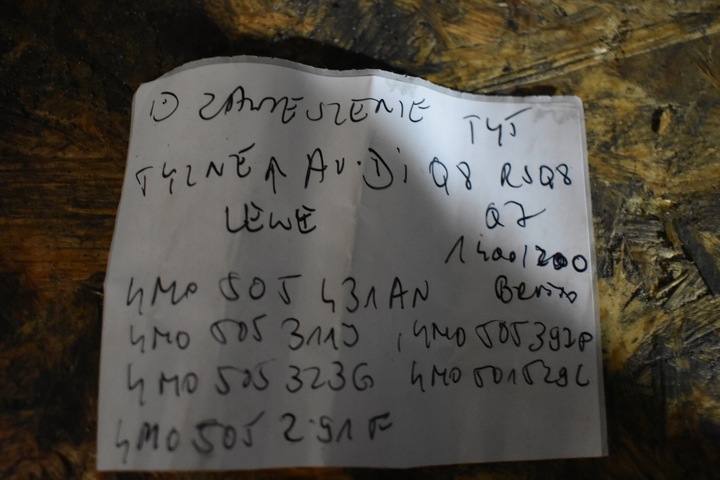 1) ZAWIESZENIE TYŚ
TYLNE AUDI Q8 RSQ8
LEWE Q7
1400/1200
4M0 505 431AN
4M0 505 311J, 4M0 505 392P
4M0 505 323G 4M0 501 529L
4M0 505 291F